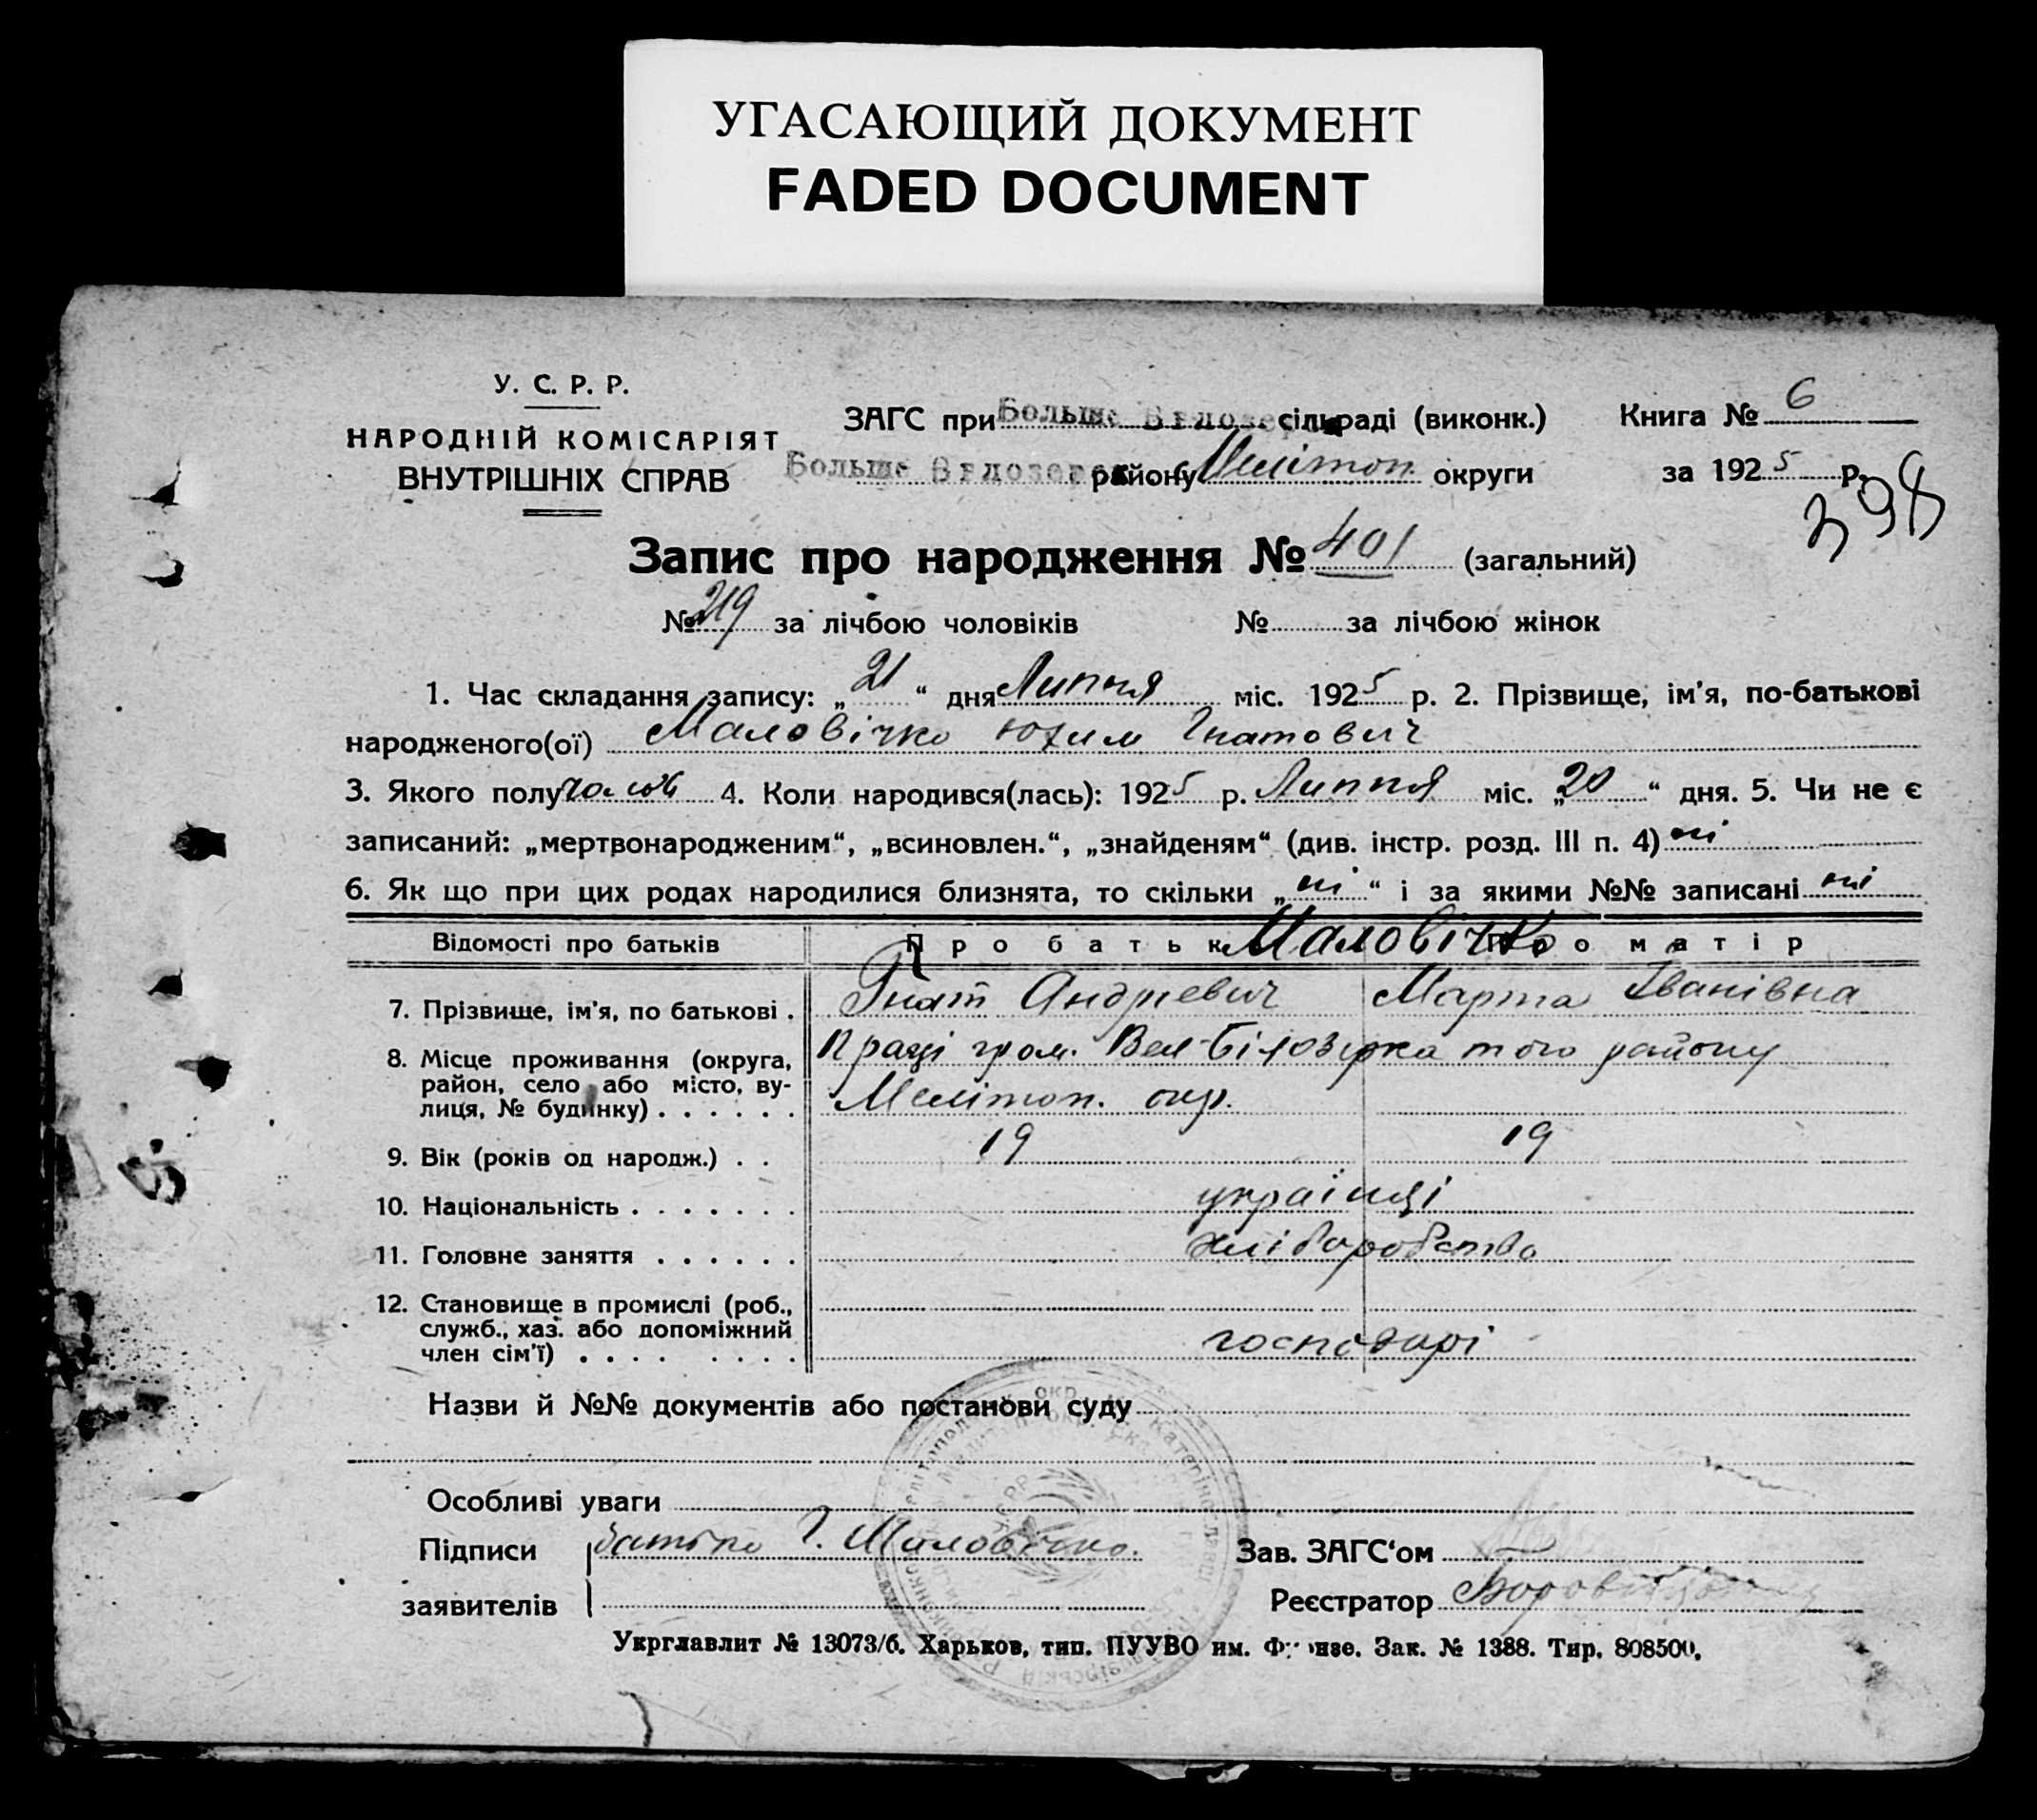 УГАСАЮЩИЙ ДОКУМЕНТ
FADED DOCUMENT
У. С. Р. Р.
НАРОДНІЙ КОМІСАРІЯТ
ВНУТРІШНІХ СПРАВ
ЗАГС при Больше Белозерск сільраді (виконк.)
Книга № 6
Больше Белозерск району Меліт​оп. округи
за 1925 р.
398
Запис про народження № 401 (загальний)
№ 219 за лічбою чоловіків № за лічбою жінок
1. Час складання запису: „21“ дня Липня міс. 1925 р. 2. Прізвище, ім’я, по-батькові
народженого(ої) Маловічко Юхим Гнатович
3. Якого полу чолов 4. Коли народився(лась): 1925 р. Липня міс. „20“ дня. 5. Чи не є
записаний: „мертвонародженим“, „всиновлен.“, „знайденям“ (див. інстр. розд. III п. 4) ні
6. Як що при цих родах народилися близнята, то скільки „ні“ і за якими №№ записані ні
Відомості про батьків Про батька Маловічко Про матір
7. Прізвище, ім’я, по батькові . Гнат Андрієвич Марта Іванівна
8. Місце проживання (округа, гром. Вел-Білозірка того району
район, село або місто, ву-
лиця, № будинку) . . . . . . Меліт​оп. окр.
9. Вік (років од народж.) . . 19 19
10. Національність . . . . . . . українці
11. Головне заняття . . . . . . хліборобство
12. Становище в промислі (роб.,
служб., хаз. або допоміжний
член сім’ї) . . . . . . . . господарі
Назви й №№ документів або постанови суду
Особливі уваги
Підписи батько Г. Маловічко.
Зав. ЗАГС‘ом
заявителів
Реєстратор
Укрглавлит № 13073/б. Харьков, тип. ПУУВО им. Фрунзе. Зак. № 1388. Тир. 808500.